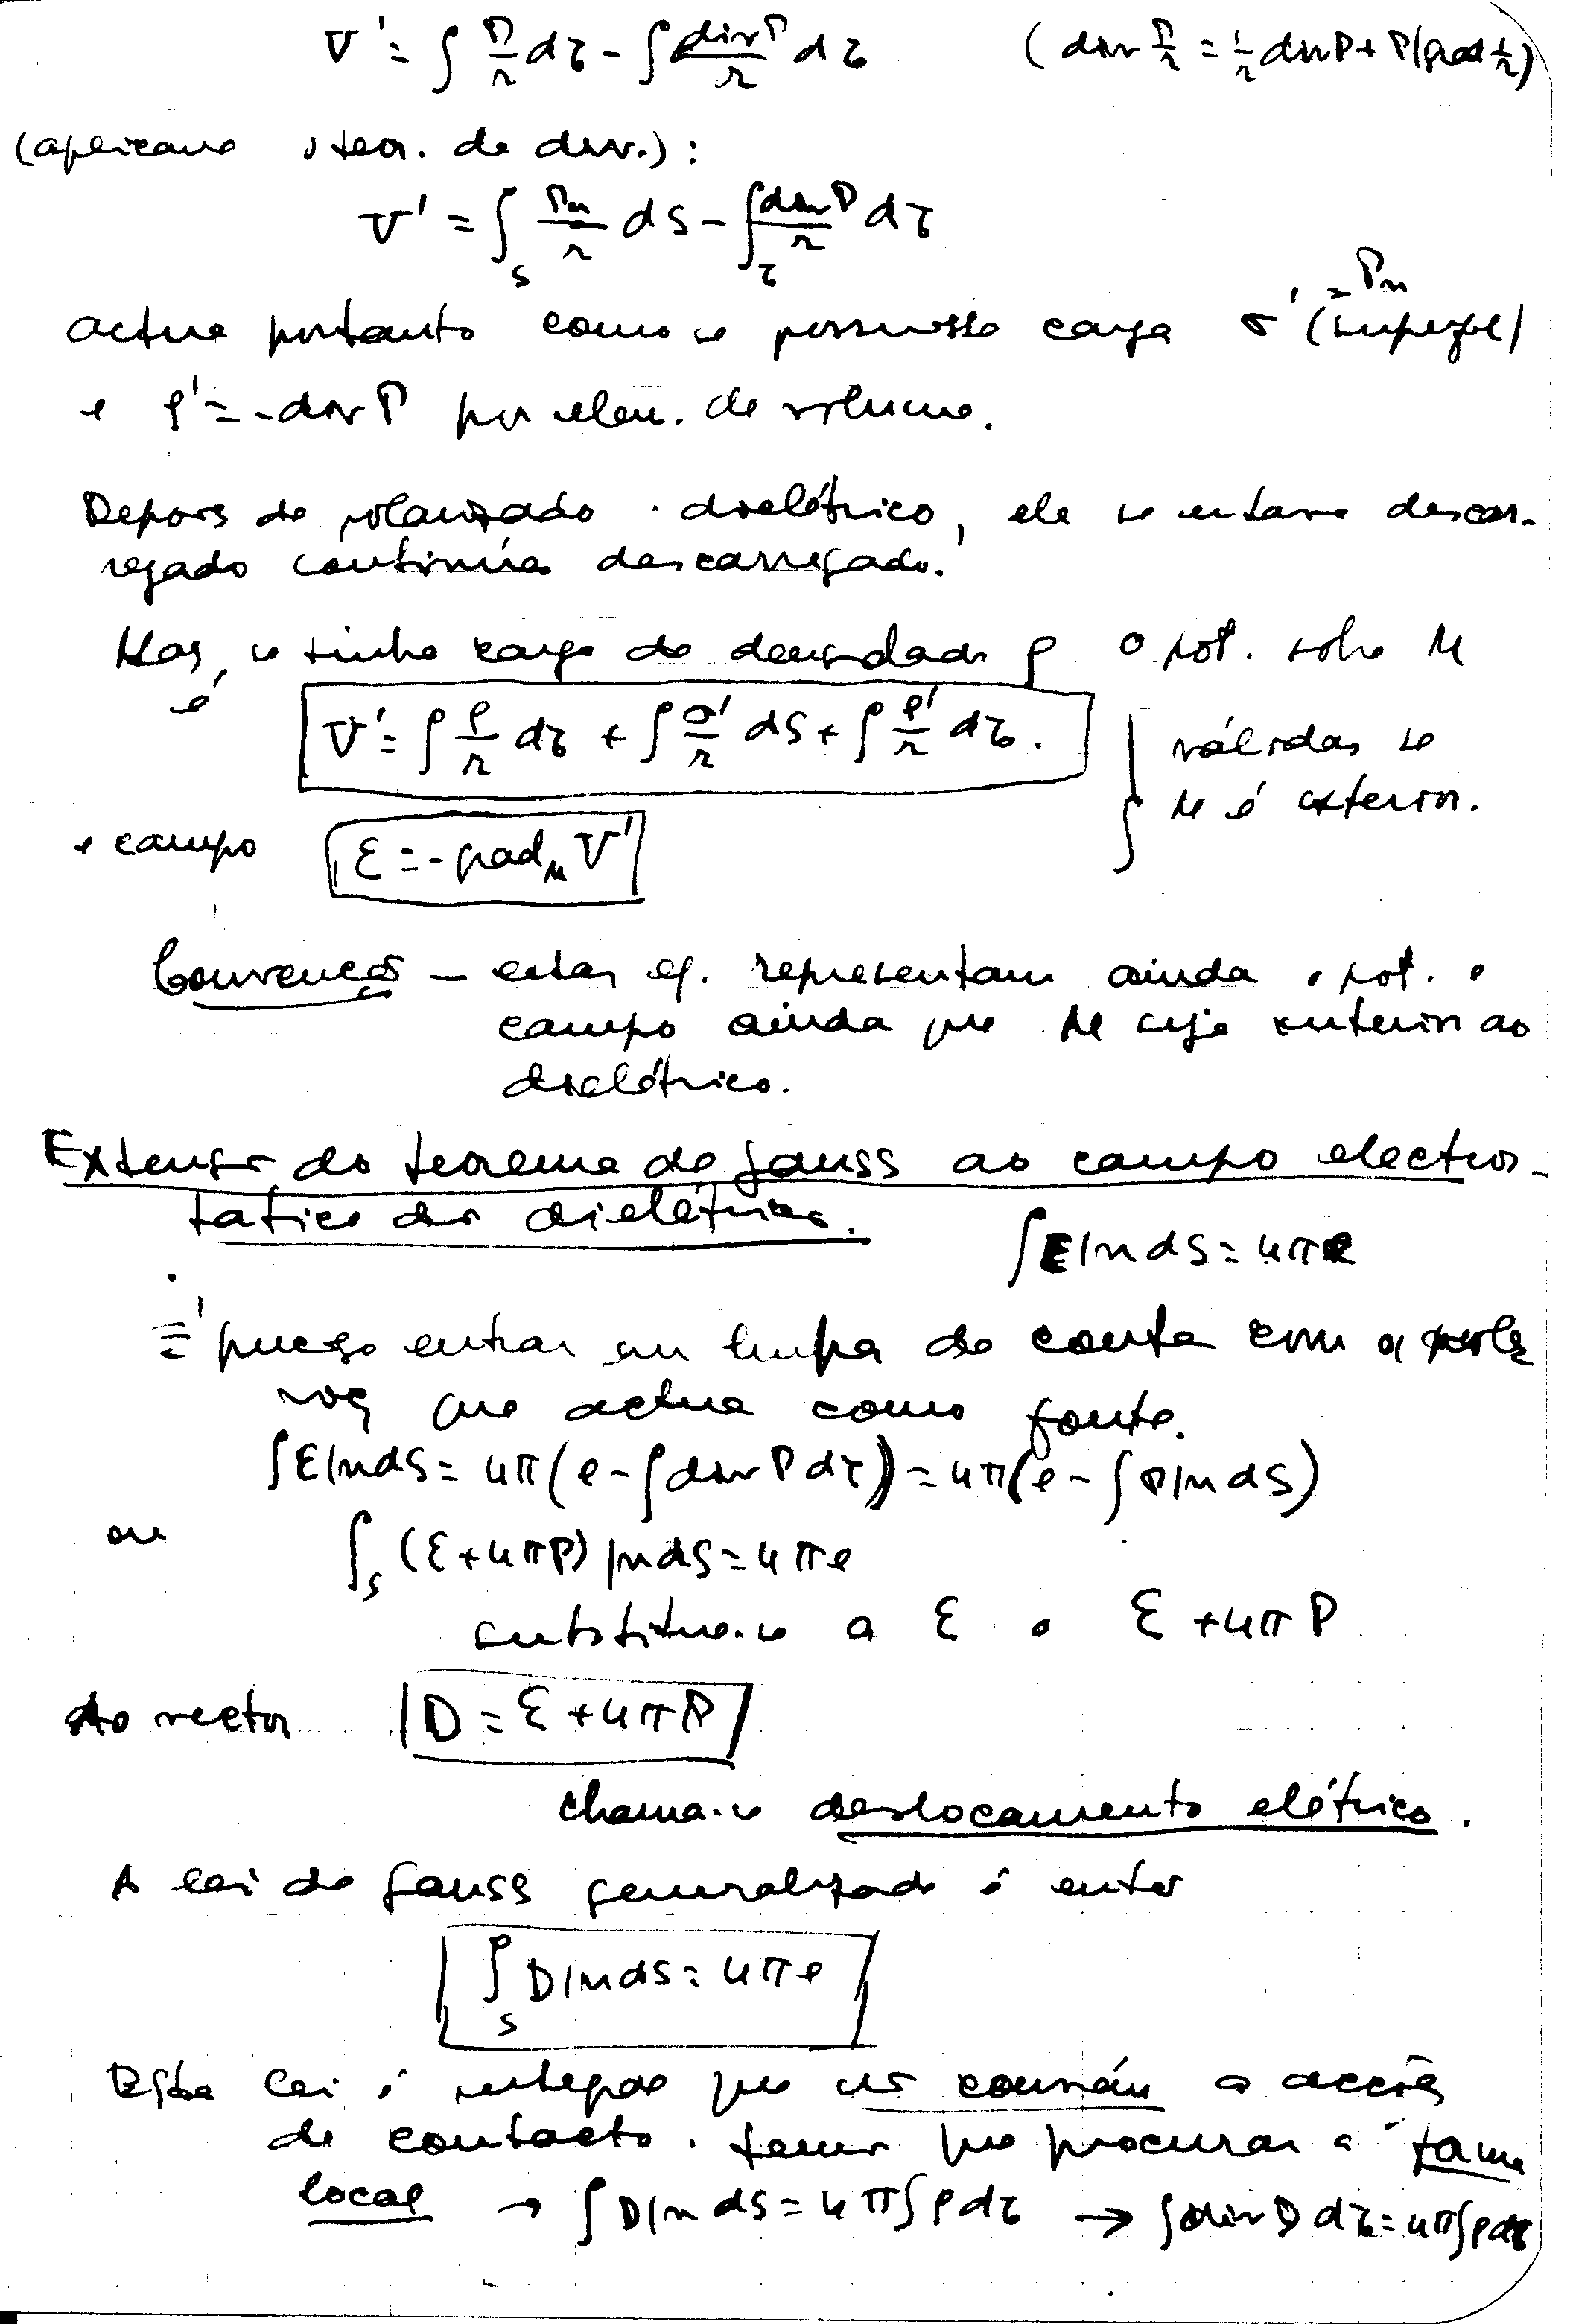 V' = ∫ P/r dτ - ∫ div P/r dτ (div P/r = 1/r div P + P|grad 1/r)
(aplicando o teor. da div.):
V' = ∫_S Pn/r dS - ∫_τ div P/r dτ
actua portanto como se possuisse carga σ' = Pn (superfel)
e ρ' = -div P por elem. de volume.
Depois de polarizado o dielétrico, ele se estava descar-
regado continúa descarregado.
Mas, se tinha carga de densidade ρ o pot. sobre M
é V' = ∫ ρ/r dτ + ∫ σ'/r dS + ∫ ρ'/r dτ. válidas se
M é exterior.
e campo ε = - grad_M V'
Convenção - estas eq. representam ainda o pot. e
campo ainda que M seja interior ao
dielétrico.
Extensão do teorema de Gauss ao campo electros-
tatico dos dielétricos.
∫E|n dS = 4πe
É preciso entrar em linha de conta com a pola
rizç que actua como fonte.
∫ε|n dS = 4π(e - ∫div P dτ) = 4π(e - ∫P|n dS)
ou ∫_S (ε + 4πP)|n dS = 4πe
substitue-se a ε o ε + 4πP
Ao vector D = ε + 4πP
chama-se deslocamento elétrico.
A lei de Gauss generalizada é entao
∫_S D|n dS = 4πe
Esta lei é integral que não convém a acções
de contacto. temos que procurar a forma
local → ∫ D|n dS = 4π∫ρ dτ → ∫div D dτ = 4π∫ρ dτ